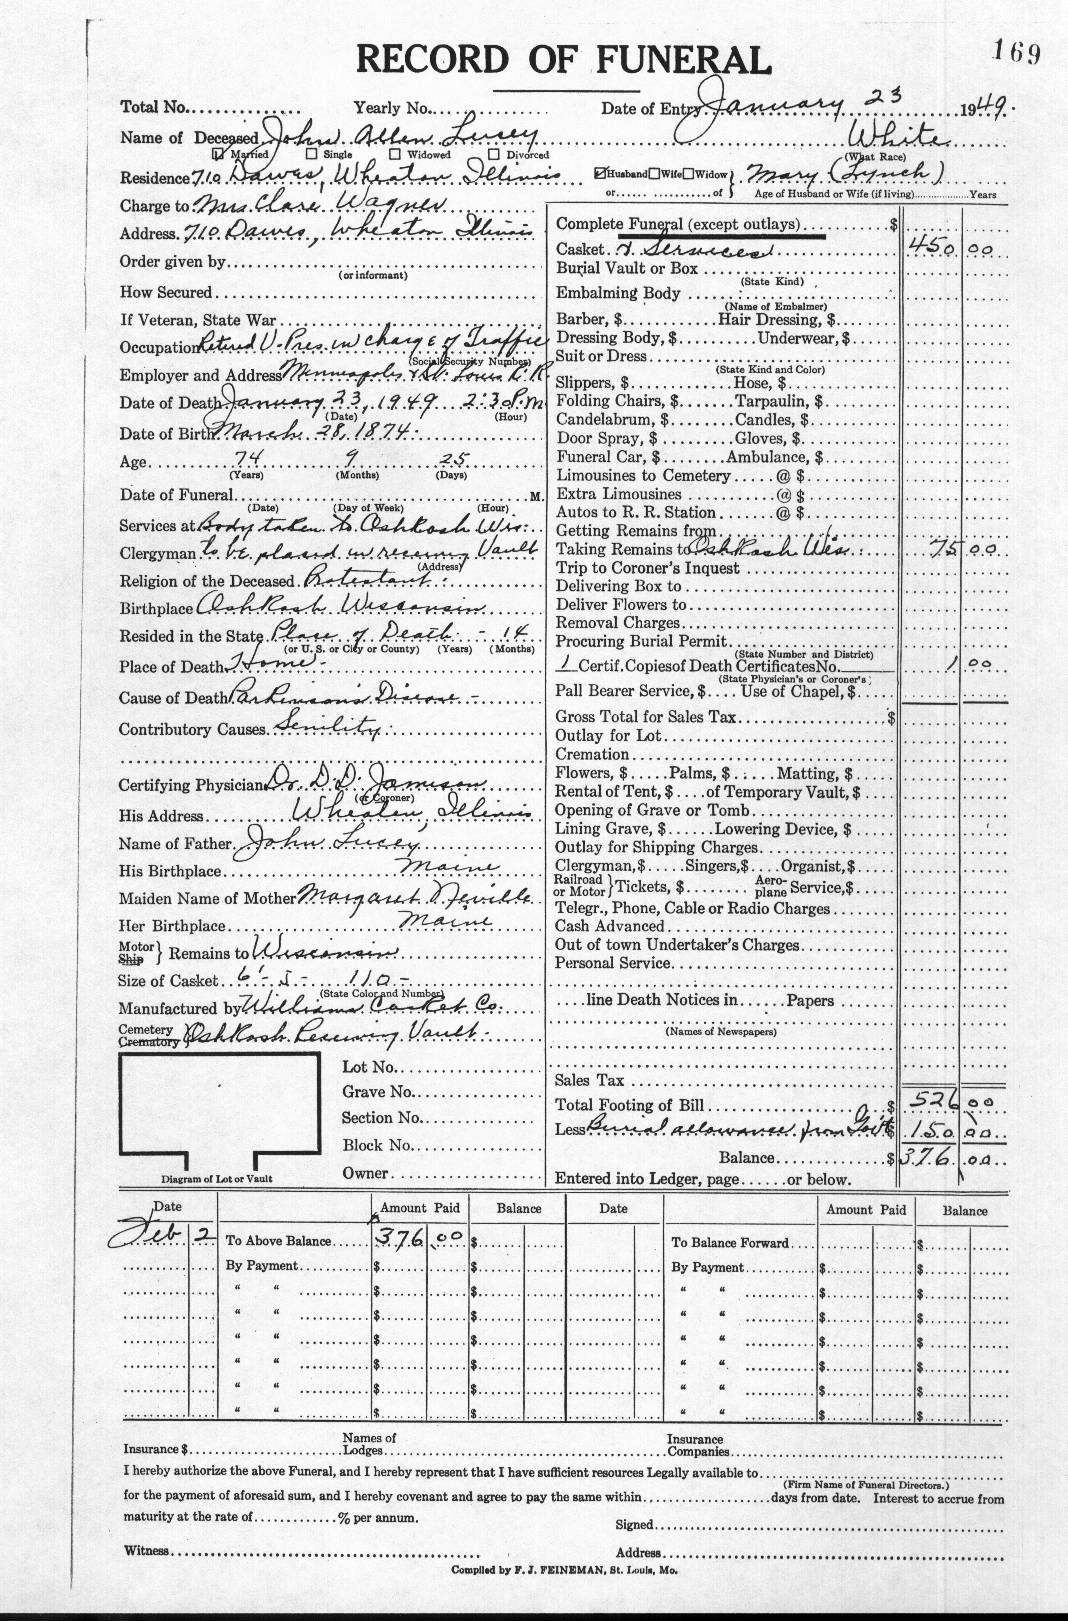 169
RECORD OF FUNERAL
Total No............... Yearly No............... Date of Entry January 23 1949.
Name of Deceased John Allen Lucey White
☑ Married ☐ Single ☐ Widowed ☐ Divorced (What Race)
Residence 710 Dawes, Wheaton Illinois ☑Husband☐Wife☐Widow} Mary (Lynch)
or........ of } Age of Husband or Wife (if living)........Years
Charge to Mrs. Clare Wagner
Address. 710 Dawes, Wheaton Illinois
Order given by
(or informant)
How Secured
If Veteran, State War
Occupation Retired V. Pres. in charge of Traffic
(Social Security Number)
Employer and Address Minneapolis & St. Louis R. R.
Date of Death January 23, 1949 2:30 P.m
(Date) (Hour)
Date of Birth March 28, 1874.
Age 74 9 25
(Years) (Months) (Days)
Date of Funeral M.
(Date) (Day of Week) (Hour)
Services at Body taken to Oshkosh Wis.
Clergyman to be placed in receiving Vault
(Address)
Religion of the Deceased Protestant.
Birthplace Oshkosh Wisconsin
Resided in the State Place of Death - 14
(or U. S. or City or County) (Years) (Months)
Place of Death Home -
Cause of Death Parkinson's Disease -
Contributory Causes. Senility.
Certifying Physician Dr. D. D. Jamison
(or Coroner)
His Address Wheaton, Illinois
Name of Father. John Lucey
His Birthplace Maine
Maiden Name of Mother Margaret Neville
Her Birthplace Maine
Motor
Ship } Remains to Wisconsin
Size of Casket 6'- 5 - 110 -
(State Color and Number)
Manufactured by Williams Casket Co.
Cemetery
Crematory } Oshkosh Receiving Vault.
Lot No.
Grave No.
Section No.
Block No.
Owner
Diagram of Lot or Vault
Complete Funeral (except outlays) $
Casket & Services 450 00
Burial Vault or Box
(State Kind)
Embalming Body
(Name of Embalmer)
Barber, $ Hair Dressing, $
Dressing Body, $ Underwear, $
Suit or Dress
(State Kind and Color)
Slippers, $ Hose, $
Folding Chairs, $ Tarpaulin, $
Candelabrum, $ Candles, $
Door Spray, $ Gloves, $
Funeral Car, $ Ambulance, $
Limousines to Cemetery @ $
Extra Limousines @ $
Autos to R. R. Station @ $
Getting Remains from
Taking Remains to Oshkosh Wis. 75 00
Trip to Coroner's Inquest
Delivering Box to
Deliver Flowers to
Removal Charges
Procuring Burial Permit
(State Number and District)
1 Certif. Copies of Death Certificates No. 1 00
(State Physician's or Coroner's)
Pall Bearer Service, $ Use of Chapel, $
Gross Total for Sales Tax $
Outlay for Lot
Cremation
Flowers, $ Palms, $ Matting, $
Rental of Tent, $ of Temporary Vault, $
Opening of Grave or Tomb
Lining Grave, $ Lowering Device, $
Outlay for Shipping Charges
Clergyman, $ Singers, $ Organist, $
Railroad
or Motor } Tickets, $ Aero-
plane Service, $
Telegr., Phone, Cable or Radio Charges
Cash Advanced
Out of town Undertaker's Charges
Personal Service
line Death Notices in Papers
(Names of Newspapers)
Sales Tax
Total Footing of Bill $ 526 00
Less Burial allowance from Gov't $ 150 00
Balance $ 376 00
Entered into Ledger, page......or below.
Date Amount Paid Balance Date Amount Paid Balance
Feb 2 To Above Balance 376 00 $ To Balance Forward $
By Payment $ $ By Payment $ $
" " $ $ " " $ $
" " $ $ " " $ $
" " $ $ " " $ $
" " $ $ " " $ $
" " $ $ " " $ $
" " $ $ " " $ $
Insurance $ Names of
Lodges Insurance
Companies
I hereby authorize the above Funeral, and I hereby represent that I have sufficient resources Legally available to
(Firm Name of Funeral Directors.)
for the payment of aforesaid sum, and I hereby covenant and agree to pay the same within days from date. Interest to accrue from
maturity at the rate of % per annum.
Signed
Witness Address
Compiled by F. J. FEINEMAN, St. Louis, Mo.